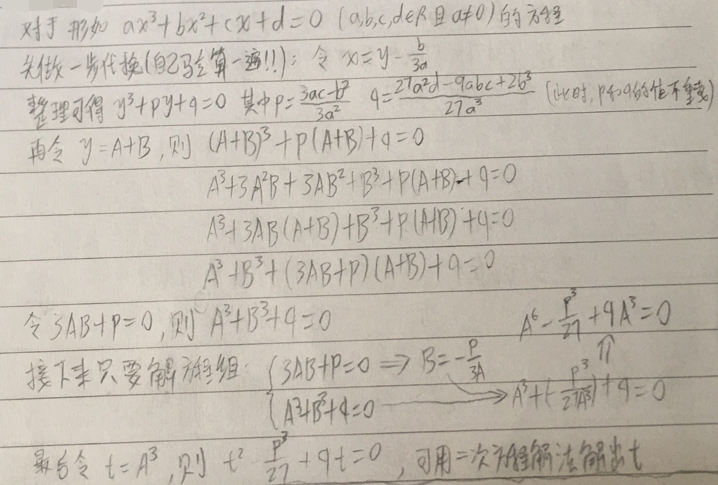 对于形如 ax³+bx²+cx+d=0 (a,b,c,d∈R且a≠0)的方程
先做一步代换(自己写去算一遍!!): 令 x=y-b/3a
整理可得 y³+py+q=0 其中p=(3ac-b²)/3a² q=(27a²d-9abc+2b³)/27a³ (此时,p和q的值不重要)
再令 y=A+B,则 (A+B)³+p(A+B)+q=0
A³+3A²B+3AB²+B³+p(A+B)+q=0
A³+3AB(A+B)+B³+p(A+B)+q=0
A³+B³+(3AB+p)(A+B)+q=0
令 3AB+p=0,则 A³+B³+q=0 A⁶-p³/27+qA³=0
⇑
接下来只要解方程组: {3AB+p=0 ⟹ B=-p/3A
A³+B³+q=0 → A³+(-p³/27A³)+q=0
最后令 t=A³,则 t²-p³/27+qt=0,可用二次方程解法解出t